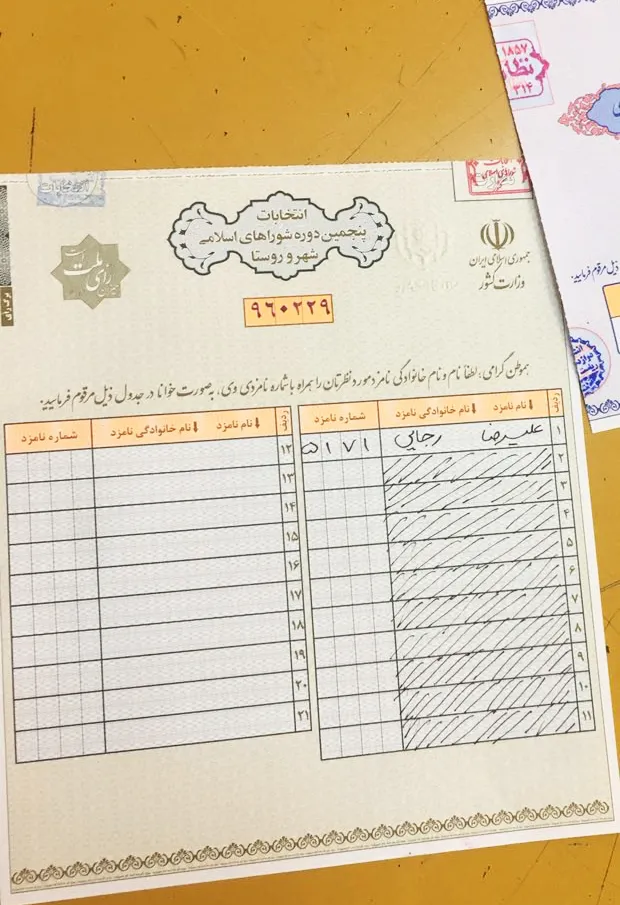 انتخابات
پنجمین دوره شوراهای اسلامی
شهر و روستا
جمهوری اسلامی ایران
وزارت کشور
رای ملت
انتخابات
برگ رای
۹۶۰۲۲۹
هموطن گرامی، لطفاً نام و نام خانوادگی نامزد مورد نظرتان را همراه با شماره نامزدی وی، به‌صورت خوانا در جدول ذیل مرقوم فرمایید:
ردیف نام نامزد نام خانوادگی نامزد شماره نامزد
۱ علیرضا رجایی ۵۱۷۱
۲
۳
۴
۵
۶
۷
۸
۹
۱۰
۱۱
ردیف نام نامزد نام خانوادگی نامزد شماره نامزد
۱۲
۱۳
۱۴
۱۵
۱۶
۱۷
۱۸
۱۹
۲۰
۲۱
۱۸۵۷
۳۱۴
ذیل مرقوم فرمایید: